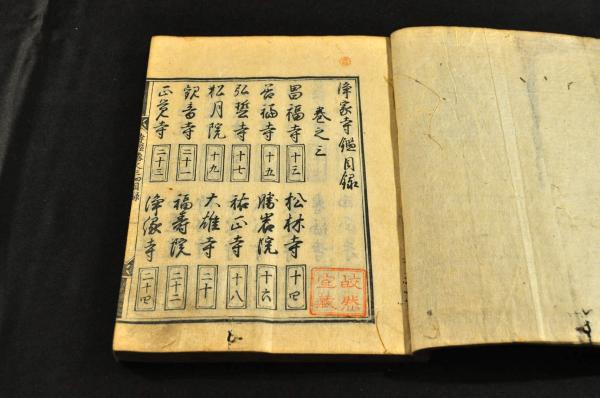 浄家寺鑑目録
巻之三
昌福寺 十三
松林寺 十四
善福寺 十五
勝岩院 十六
弘誓寺 十七
祐正寺 十八
松月院 十九
大雄寺 二十
観音寺 二十一
福寿院 二十二
正覚寺 二十三
浄縁寺 二十四